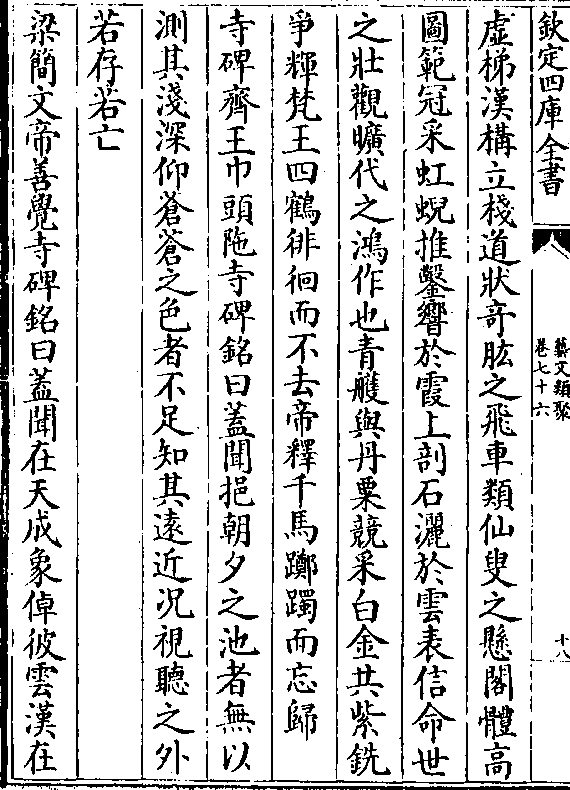 欽定四庫全書
藝文類聚
卷七十六
十八
虛梯漢構立棧道狀奇肱之飛車類仙叟之懸閣體高
圖範冠采虹蜺推鑿響於霞上剖石灑於雲表信命世
之壯觀曠代之鴻作也青雘與丹粟競采白金共紫銑
爭輝梵王四鶴徘徊而不去帝釋千馬躑躅而忘歸
寺碑齊王巾頭陁寺碑銘曰蓋聞挹朝夕之池者無以
測其淺深仰蒼蒼之色者不足知其遠近况視聽之外
若存若亡
梁簡文帝善覺寺碑銘曰蓋聞在天成象倬彼雲漢在